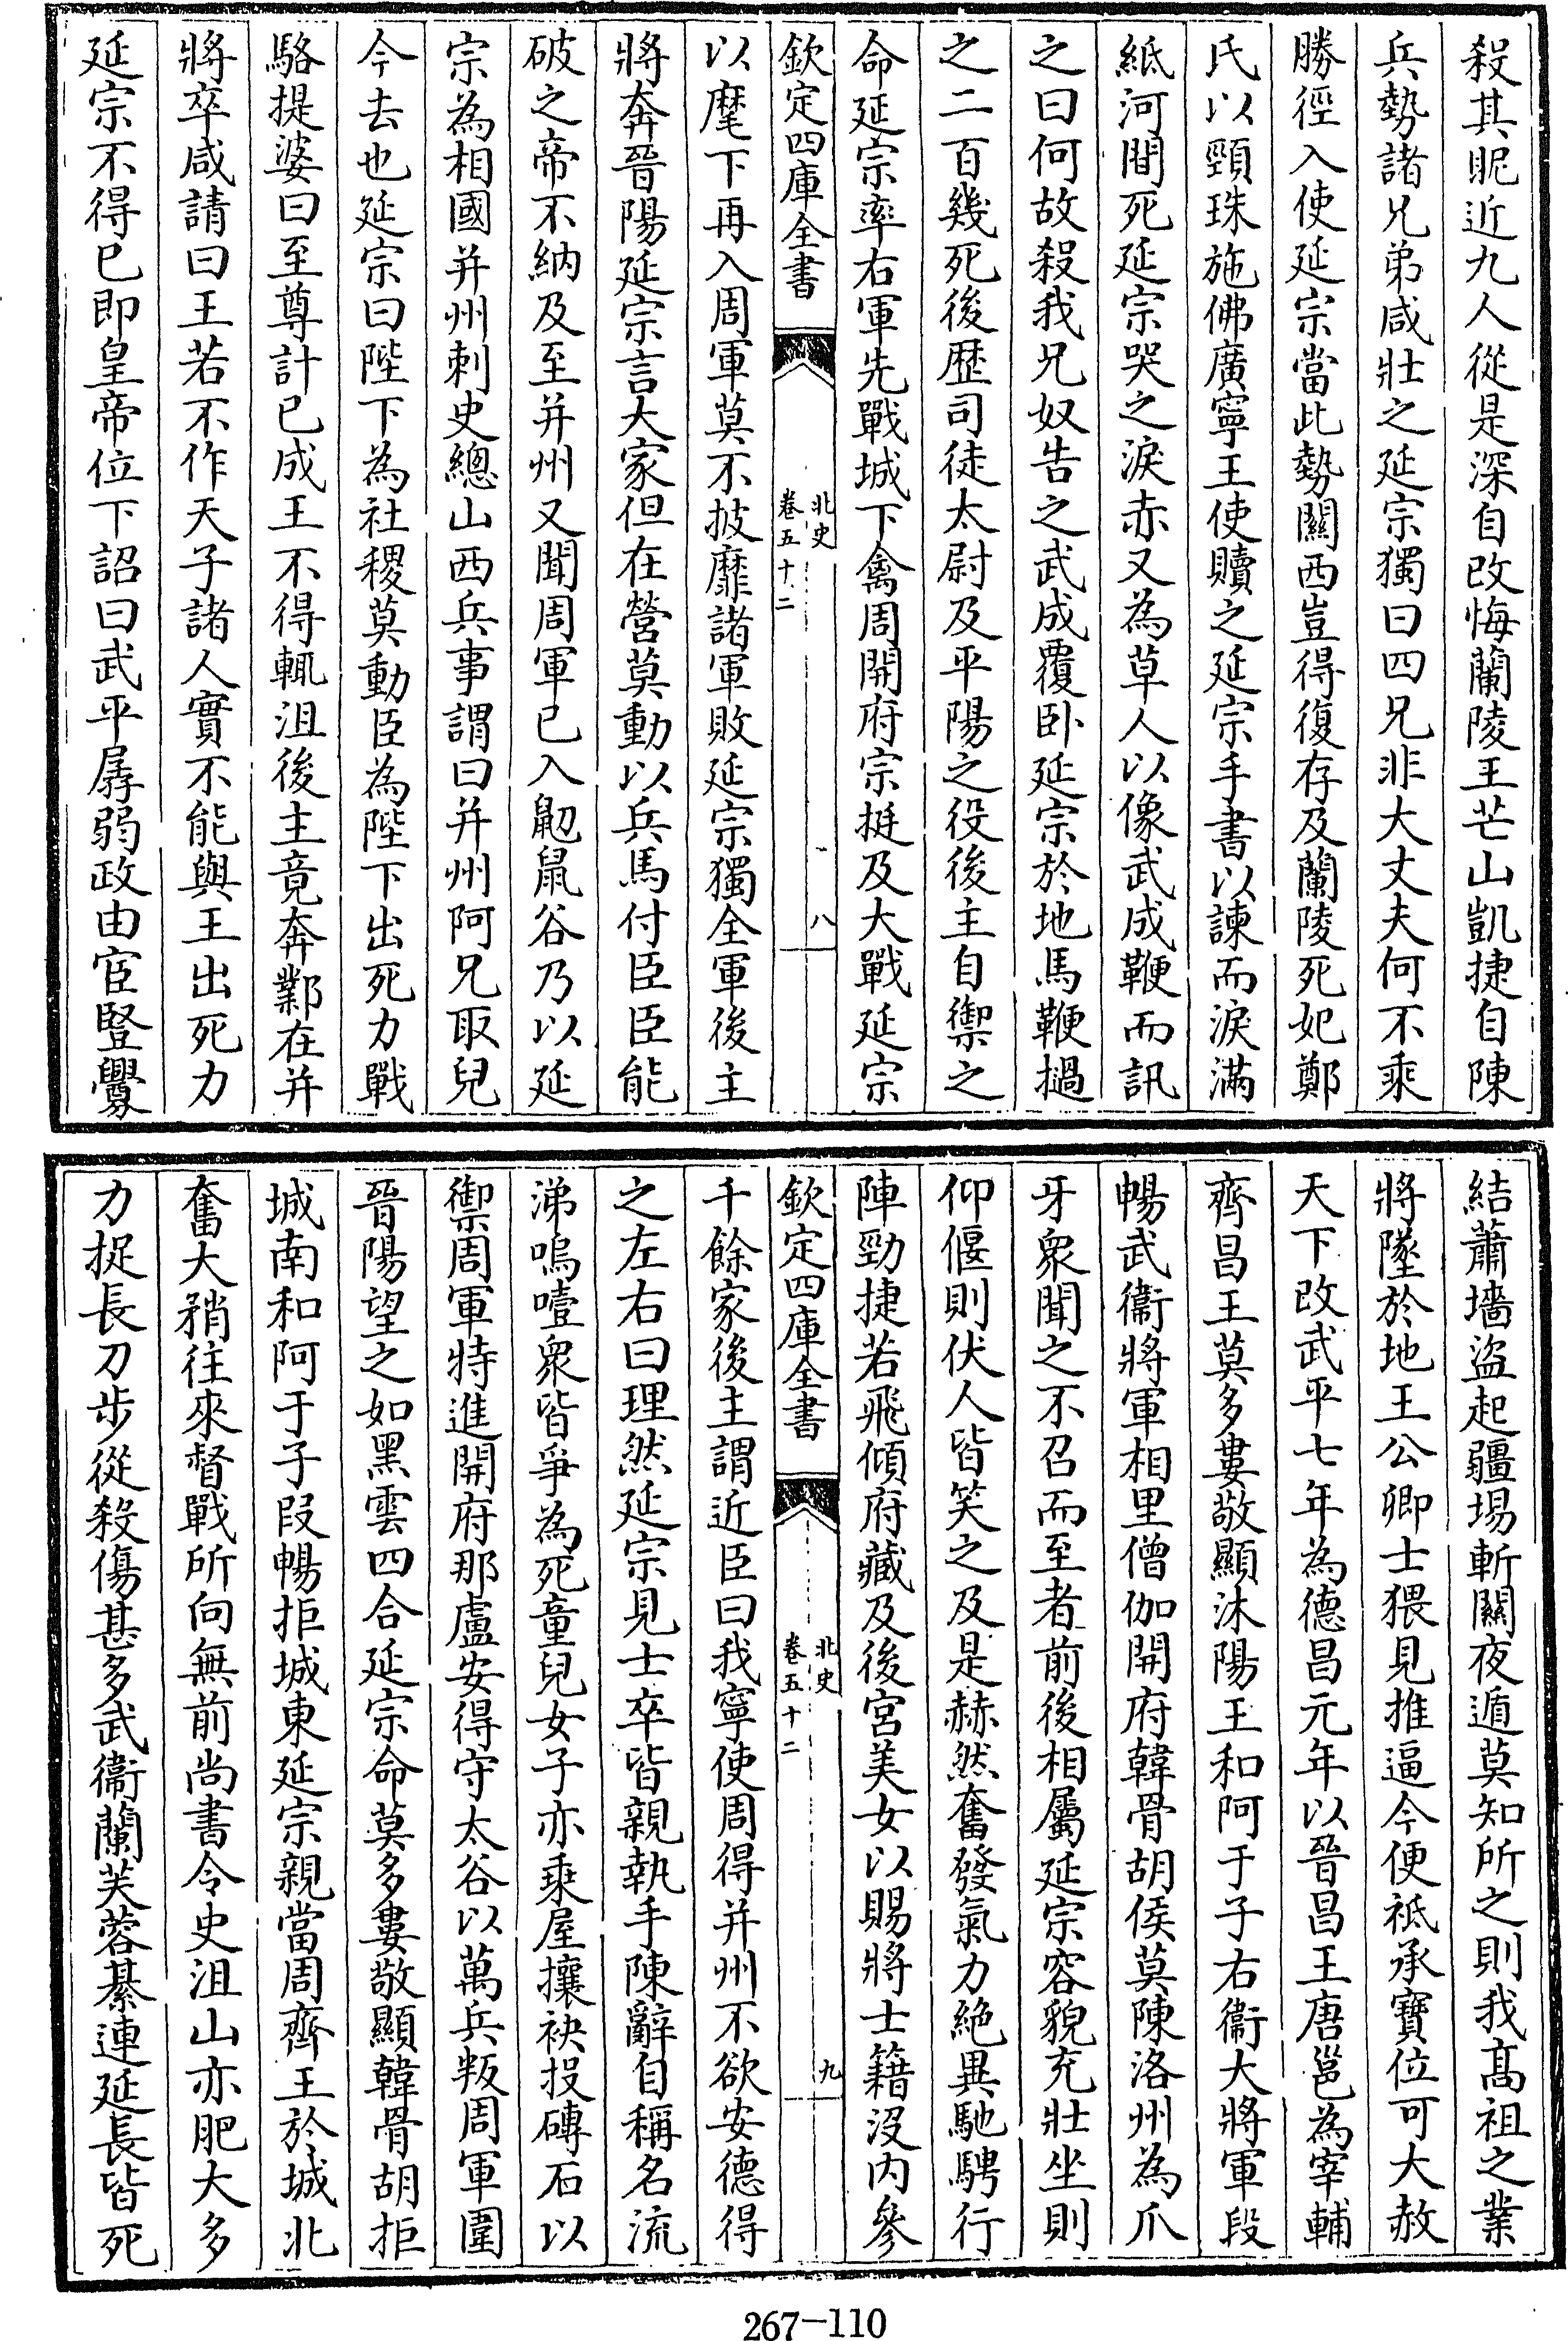 殺其昵近九人從是深自改悔蘭陵王芒山凱捷自陳
兵勢諸兄弟咸壯之延宗獨曰四兄非大丈夫何不乘
勝徑入使延宗當此勢關西豈得復存及蘭陵死妃鄭
氏以頸珠施佛廣寧王使贖之延宗手書以諫而淚滿
紙河間死延宗哭之淚赤又為草人以像武成鞭而訊
之曰何故殺我兄奴告之武成覆卧延宗於地馬鞭撾
之二百幾死後歷司徒太尉及平陽之役後主自禦之
命延宗率右軍先戰城下禽周開府宗挺及大戰延宗
欽定四庫全書
北史
卷五十二
八
以麾下再入周軍莫不披靡諸軍敗延宗獨全軍後主
將奔晉陽延宗言大家但在營莫動以兵馬付臣臣能
破之帝不納及至并州又聞周軍已入鼢鼠谷乃以延
宗為相國并州刺史總山西兵事謂曰并州阿兄取兒
今去也延宗曰陛下為社稷莫動臣為陛下出死力戰
駱提婆曰至尊計已成王不得輒沮後主竟奔鄴在并
將卒咸請曰王若不作天子諸人實不能與王出死力
延宗不得已即皇帝位下詔曰武平孱弱政由宦豎釁
結蕭墻盜起疆場斬關夜遁莫知所之則我高祖之業
將墜於地王公卿士猥見推逼今便祗承寶位可大赦
天下改武平七年為德昌元年以晉昌王唐邕為宰輔
齊昌王莫多婁敬顯沐陽王和阿于子右衞大將軍段
暢武衞將軍相里僧伽開府韓骨胡侯莫陳洛州為爪
牙衆聞之不召而至者前後相屬延宗容貌充壯坐則
仰偃則伏人皆笑之及是赫然奮發氣力絶異馳騁行
陣勁捷若飛傾府藏及後宮美女以賜將士籍沒内參
欽定四庫全書
北史
卷五十二
九
千餘家後主謂近臣曰我寧使周得并州不欲安德得
之左右曰理然延宗見士卒皆親執手陳辭自稱名流
涕嗚噎衆皆爭為死童兒女子亦乘屋攘袂投磚石以
禦周軍特進開府那盧安得守太谷以萬兵叛周軍圍
晉陽望之如黑雲四合延宗命莫多婁敬顯韓骨胡拒
城南和阿于子段暢拒城東延宗親當周齊王於城北
奮大矟往來督戰所向無前尚書令史沮山亦肥大多
力捉長刀步從殺傷甚多武衞蘭芙蓉綦連延長皆死
267-110